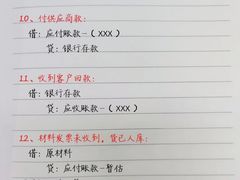 10、付供应商款:
借: 应付账款-（XXX）
贷: 银行存款
11、收到客户回款:
借: 银行存款
贷: 应收账款-（XXX）
12、材料发票未收到，货已入库:
借: 原材料
贷: 应付账款-暂估